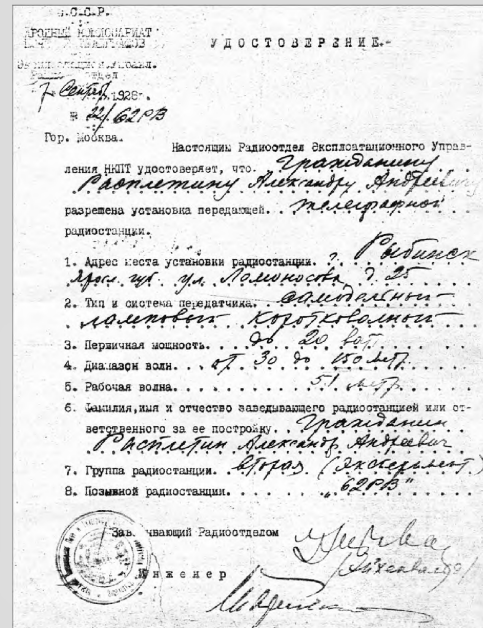 С.С.С.Р.
НАРОДНЫЙ КОМИССАРИАТ
ПОЧТ И ТЕЛЕГРАФОВ
УДОСТОВЕРЕНИЕ.-
7 Сентяб 1928г.
№ 22/62РВ
Гор. Москва.
Настоящим Радиоотдел Эксплоатационного Управ-
ления НКПТ удостоверяет, что. Гражданину
Расплетину Александру Андреевичу
разрешена установка передающей. телеграфной
радиостанции.
1. Адрес места установки радиостанции. г. Рыбинск
Яросл. губ. ул. Ломоносова д. 25
2. Тип и система передатчика. самодельный
ламповый коротковолновый
3. Первичная мощность. до 20 ват
4. Диапазон волн. от 30 до 150 метр.
5. Рабочая волна. 51 метр.
6. Фамилия,имя и отчество заведывающего радиостанцией или от-
ветственного за ее постройку. Гражданин
Расплетин Александр Андреевич
7. Группа радиостанции. вторая (эксперимент.)
8. Позывной радиостанции. "62РВ"
Заведывающий Радиоотделом
Инженер